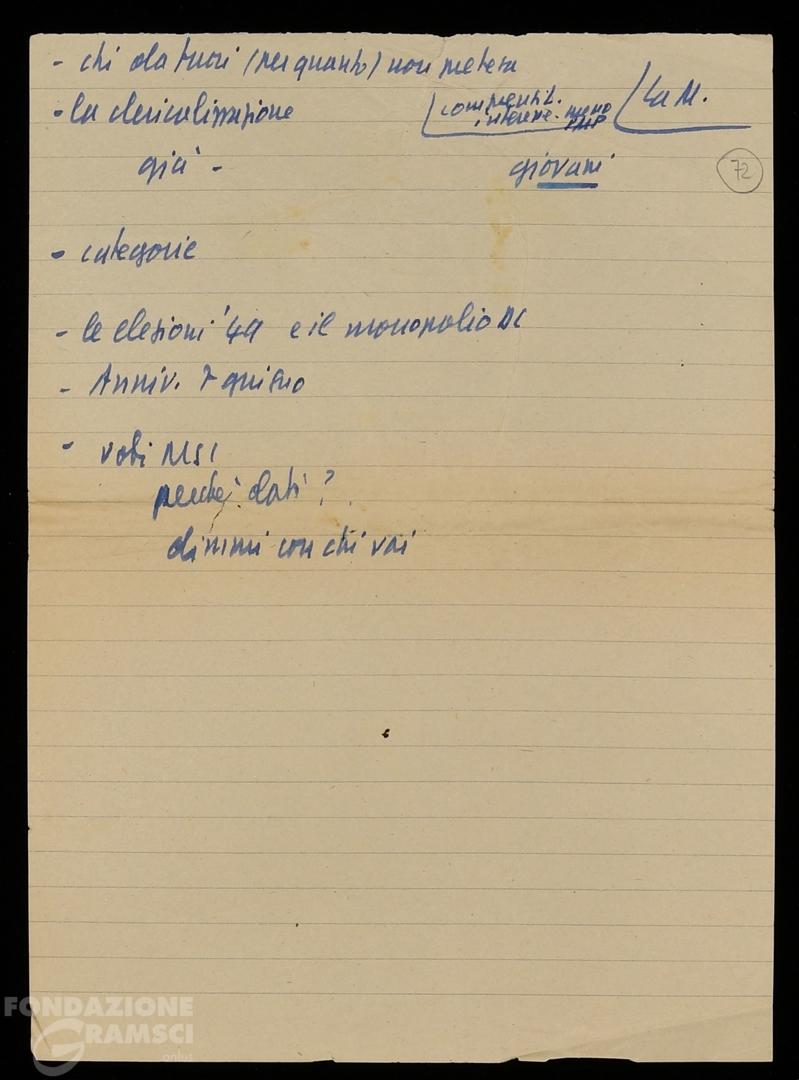 - chi da fuori (per quanto) non
- la clericalizzazione
La M.
già -
giovani
72
- categorie
- le elezioni '49 e il monopolio DC
- Anniv. 7 giugno
- voti MSI
perché dati?
dimmi con chi vai
FONDAZIONE
GRAMSCI
onlus